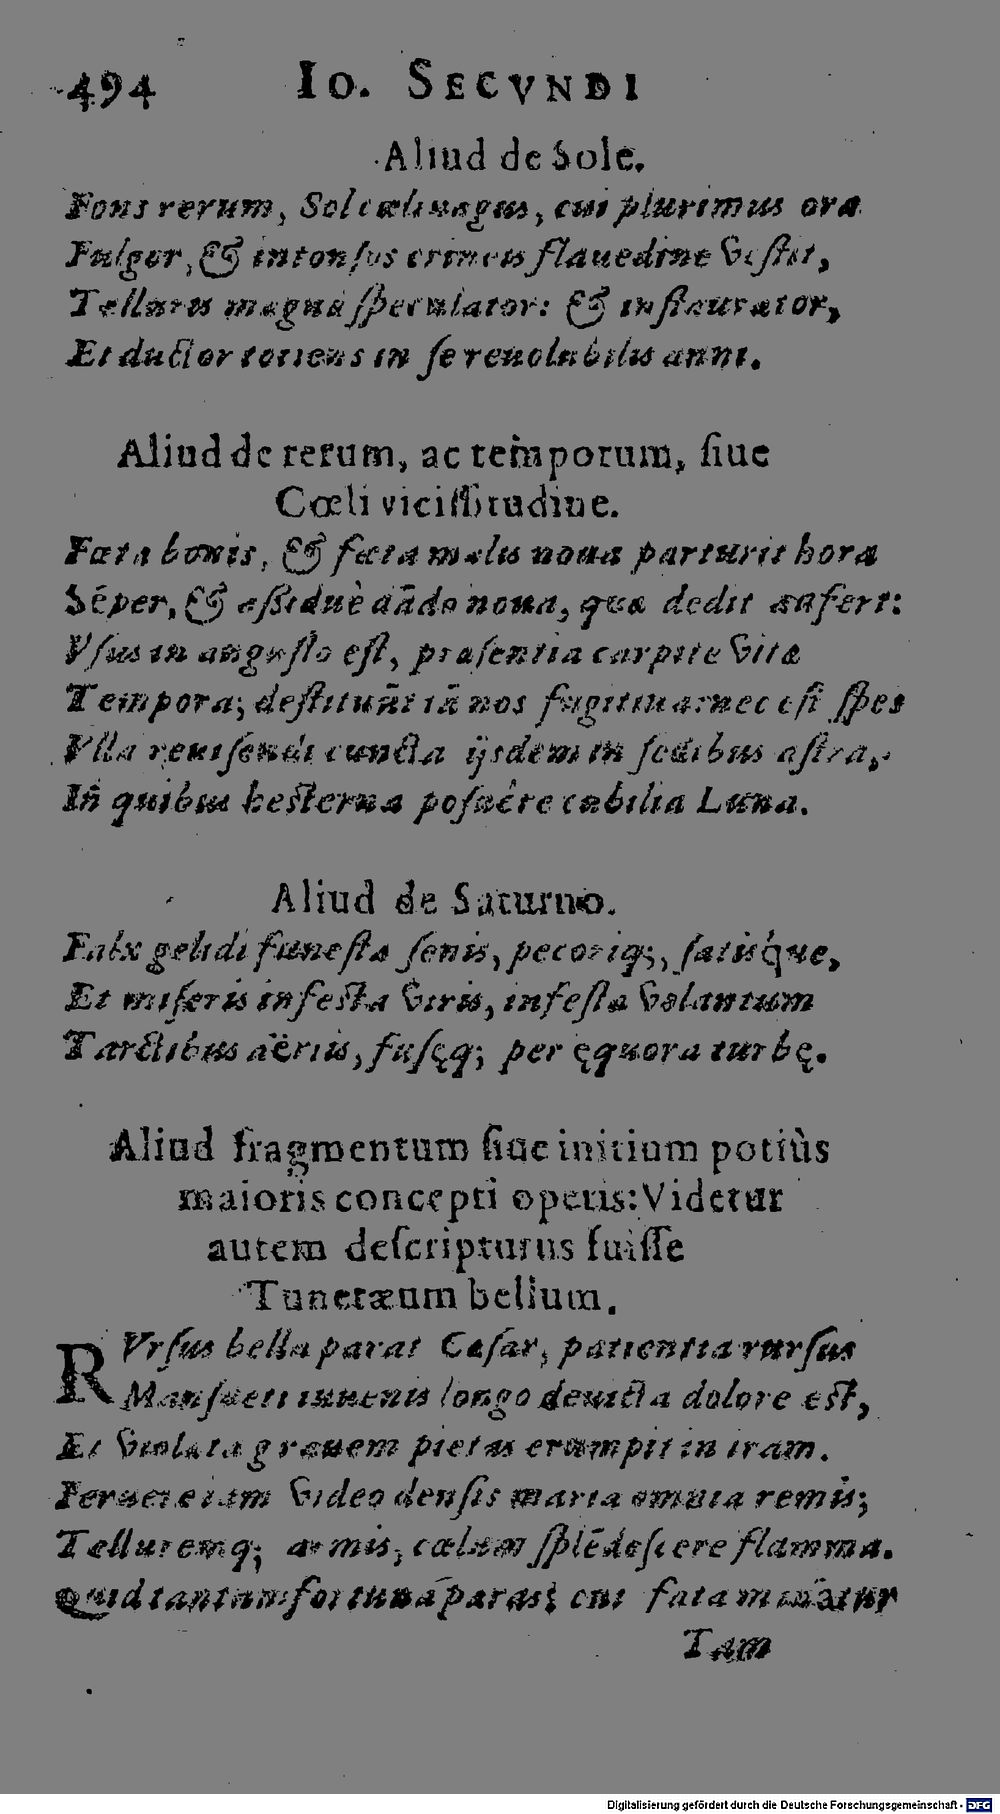 494 IO. SECVNDI
Aliud de Sole.
Fons rerum, Sol cæli uagus, cui plurimus ora
Fulgor, & intonſus crineis flauedine veſtit,
Telluris magnæ ſpeculator: & inſtaurator,
Et ductor totiens in ſe reuolubilis anni.
Aliud de rerum, ac temporum, ſiue
Cœli viciſſitudine.
Fœta bonis, & fœta malis noua parturit hora
Sēper, & aßiduè dādo noua, quæ dedit aufert:
Vſus in anguſto eſt, præſentia carpite vitæ
Tempora; deſtituūt iā nos fugitiua: nec eſt ſpes
Vlla reuiſendi cuncta ijsdem in ſedibus aſtra,
In quibus heſterna poſuêre cubilia Luna.
Aliud de Saturno.
Falx gelidi funeſta ſenis, pecoriq;, ſatisq́ue,
Et miſeris infeſta viris, infeſta volantum
Tractibus aëriis, fuſęq; per ęquora turbę.
Aliud fragmentum ſiue initium potiùs
maioris concepti operis: Videtur
autem deſcripturus fuiſſe
Tunetæum bellum.
RVrſus bella parat Cæſar, patientia rurſus
Manſueti iuuenis longo deuicta dolore eſt,
Et violata grauem pietas erumpit in iram.
Feruere iam video denſis maria omnia remis;
Telluremq; armis, cælum ſplēdeſcere flamma.
Quid tantum fortuna paras? cui fata minātur
Tam
Digitalisierung gefördert durch die Deutsche Forschungsgemeinschaft - DFG